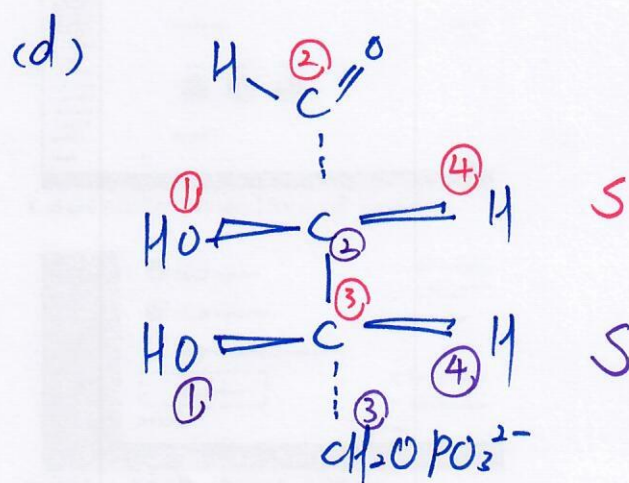 (d)
② O
H C
① ④
HO C H S
②
③
HO C H S
① ④
③
CH₂OPO₃²⁻